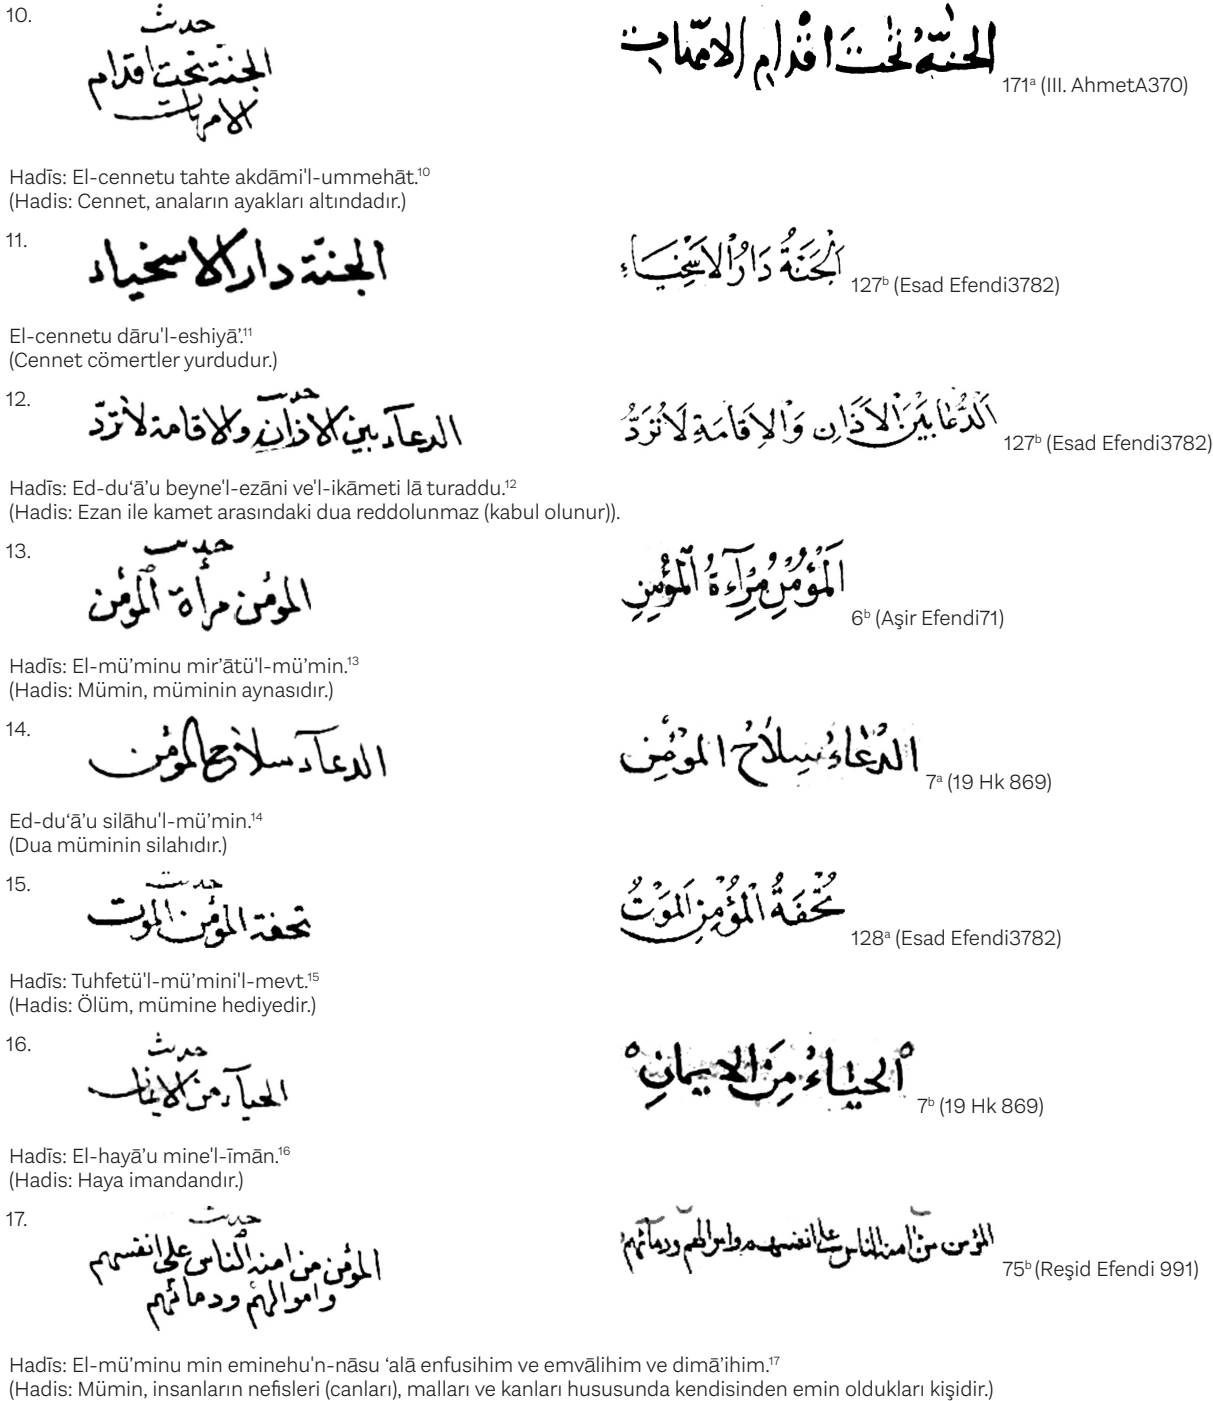 10.
حديث
الجنة تحت اقدام
الامهات
الجنّة تحتَ اقدام الامّهات
171ᵃ (III. AhmetA370)
Hadīs: El-cennetu tahte akdāmi'l-ummehāt.¹⁰
(Hadis: Cennet, anaların ayakları altındadır.)
11.
الجنّة دار الاسخياء
اَلْجَنَةُ دَارُ الْاَسْخِيَاءِ
127ᵇ (Esad Efendi3782)
El-cennetu dāru'l-eshiyā’.¹¹
(Cennet cömertler yurdudur.)
12.
حديث
الدعآء بين الاذان والاقامة لا تردّ
اَلدُّعَا بَيْنَ الْاَذَانِ وَالْاِقَامَةِ لَا تُرَدُّ
127ᵇ (Esad Efendi3782)
Hadīs: Ed-du‘ā’u beyne'l-ezāni ve'l-ikāmeti lā turaddu.¹²
(Hadis: Ezan ile kamet arasındaki dua reddolunmaz (kabul olunur)).
13.
حديث
المؤمن مرأة المؤمن
اَلْمُؤْمِنُ مِرْآءَةُ الْمُؤْمِنِ
6ᵇ (Aşir Efendi71)
Hadīs: El-mü’minu mir’ātü'l-mü’min.¹³
(Hadis: Mümin, müminin aynasıdır.)
14.
الدعآء سلاح المؤمن
الدُّعَاءُ سِلَاحُ المُؤْمِنِ
7ᵃ (19 Hk 869)
Ed-du‘ā’u silāhu'l-mü’min.¹⁴
(Dua müminin silahıdır.)
15.
حديث
تحفة المؤمن الموت
تُحْفَةُ الْمُؤْمِنِ الْمَوْتُ
128ᵃ (Esad Efendi3782)
Hadīs: Tuhfetü'l-mü’mini'l-mevt.¹⁵
(Hadis: Ölüm, mümine hediyedir.)
16.
حديث
الحيآء من الايمان
اَلحياءُ مِنَ الايمانِ
7ᵇ (19 Hk 869)
Hadīs: El-hayā’u mine'l-īmān.¹⁶
(Hadis: Haya imandandır.)
17.
حديث
المؤمن من امنه الناس على انفسهم
واموالهم ودمائهم
المؤمن من امنه الناس على انفسهم واموالهم ودمآئهم
75ᵇ (Reşid Efendi 991)
Hadīs: El-mü’minu min eminehu'n-nāsu ‘alā enfusihim ve emvālihim ve dimā’ihim.¹⁷
(Hadis: Mümin, insanların nefisleri (canları), malları ve kanları hususunda kendisinden emin oldukları kişidir.)